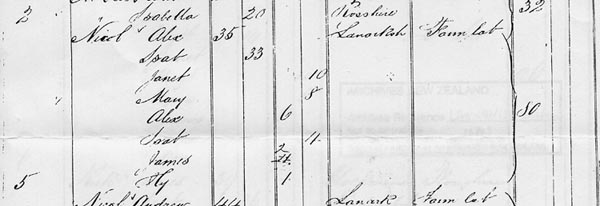 2 Isabella 20 Rosshire 32
Nicol Alex 35 Lanarksh Farm lab
Isat 33
Janet 10
" Mary 8
Alex 6 80
Isat 4
James 2
5 Hy 1
Nicol Andrew 44 Lanark Farm lab